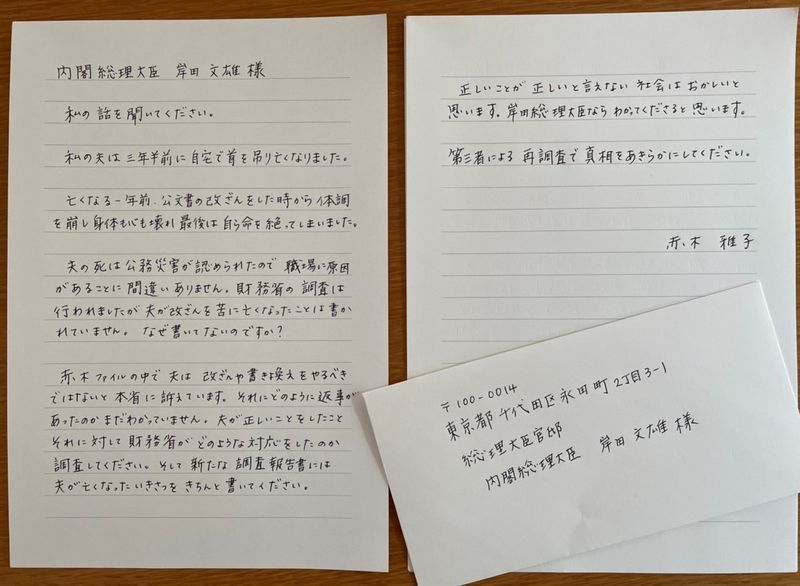 内閣総理大臣　岸田 文雄 様
私の話を聞いてください。
私の夫は三年半前に自宅で首を吊り亡くなりました。
亡くなる一年前、公文書の改ざんをした時から体調
を崩し身体も心も壊れ 最後は自ら命を絶ってしまいました。
夫の死は公務災害が認められたので 職場に原因
があることに間違いありません。財務省の調査は
行われましたが夫が改ざんを苦に亡くなったことは書か
れていません。なぜ書いてないのですか？
赤木ファイルの中で夫は 改ざんや書き換えをやるべき
ではないと本省に訴えています。それにどのように返事が
あったのかまだわかっていません。夫が正しいことをしたこと
それに対して財務省がどのような対応をしたのか
調査してください。そして新たな調査報告書には
夫が亡くなったいきさつをきちんと書いてください。
正しいことが正しいと言えない社会はおかしいと
思います。岸田総理大臣ならわかってくださると思います。
第三者による再調査で真相をあきらかにしてください。
赤木 雅子
〒100-0014
東京都千代田区永田町2丁目3-1
総理大臣官邸
内閣総理大臣　岸田 文雄 様